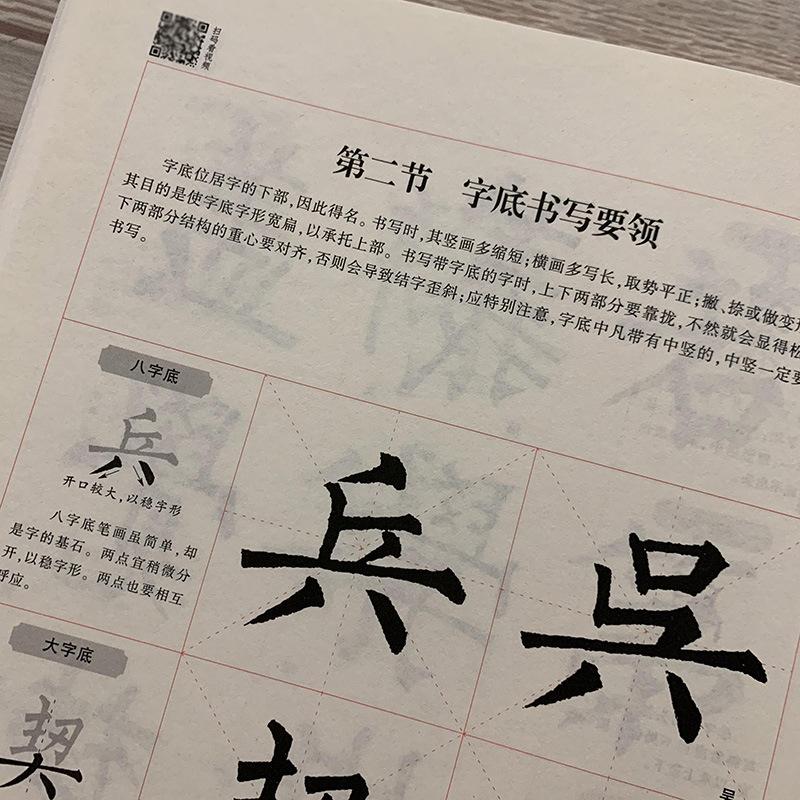 扫码看视频
第二节 字底书写要领
字底位居字的下部,因此得名。书写时,其竖画多缩短;横画多写长,取势平正;撇、捺或做变
其目的是使字底字形宽扁,以承托上部。书写带字底的字时,上下两部分要靠拢,不然就会显得松
下两部分结构的重心要对齐,否则会导致结字歪斜;应特别注意,字底中凡带有中竖的,中竖一定要
书写。
八字底
兵
开口较大,以稳字形
八字底笔画虽简单,却
是字的基石。两点宜稍微分
开,以稳字形。两点也要相互
呼应。
兵
吴
大字底
契
吴